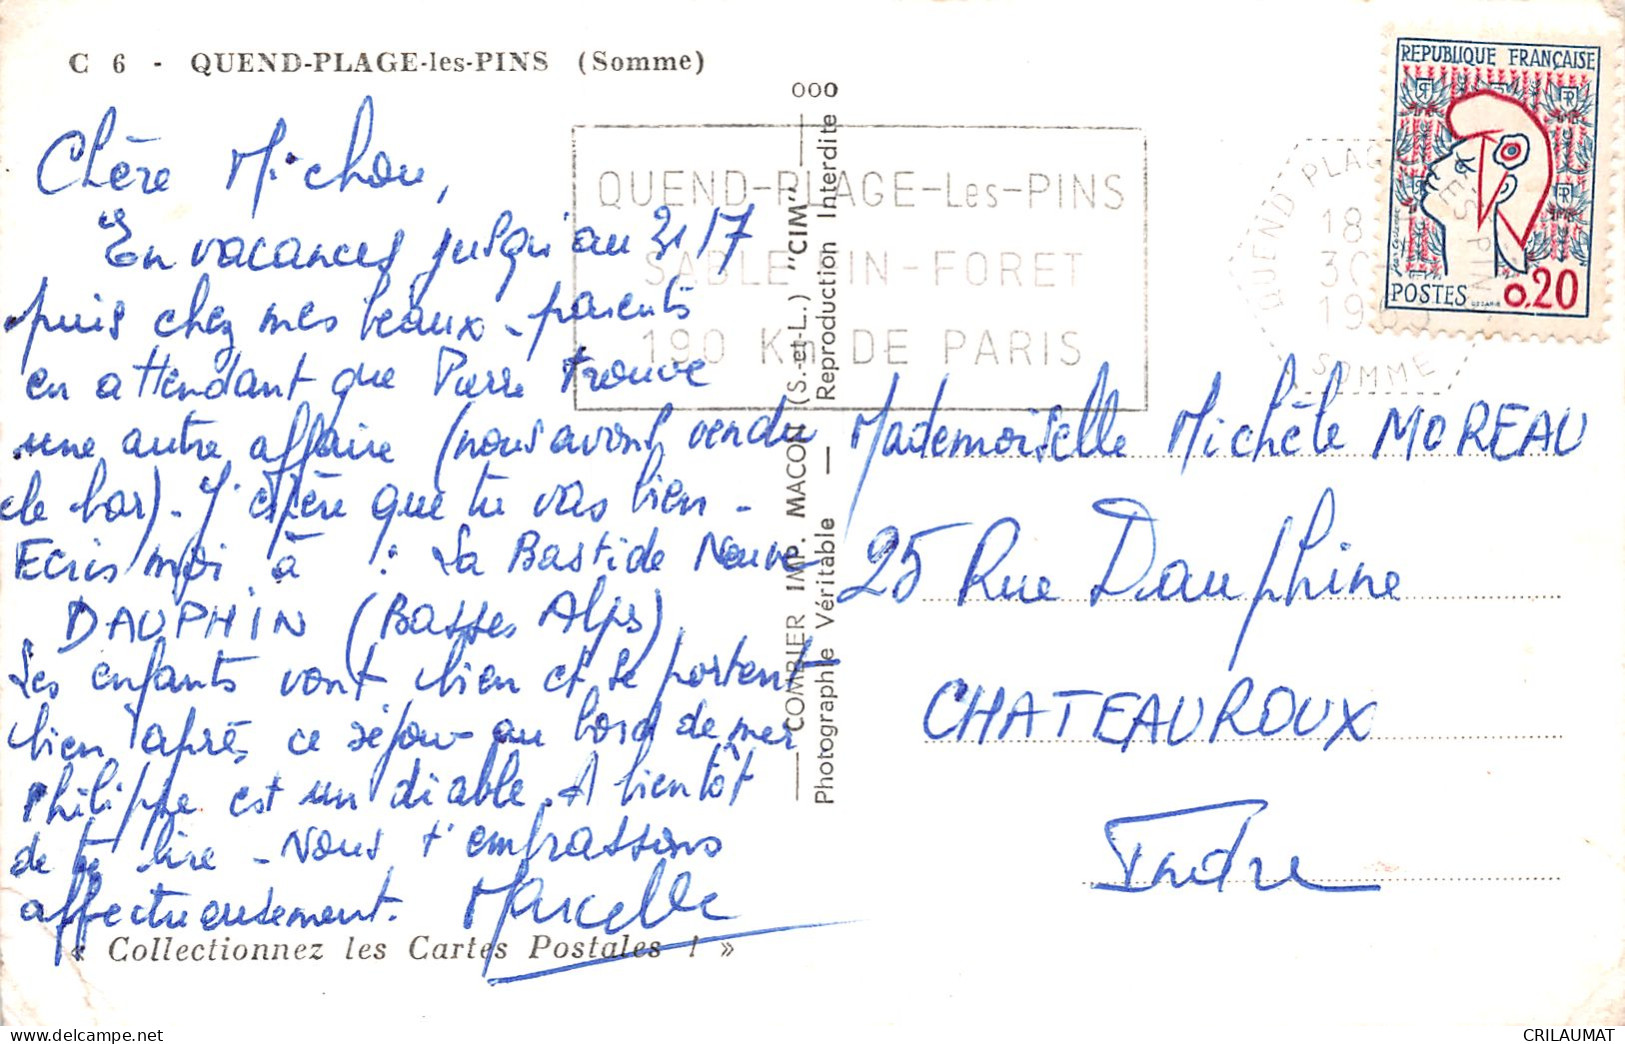 C 6 - QUEND-PLAGE-les-PINS (Somme)
Chère Michou,
En vacances jusqu'au 31/7
puis chez mes beaux-parents
en attendant que Pierre trouve
une autre affaire (nous avons vendu
le bar). J'espère que tu vas bien -
Ecris moi à : La Bastide Neuve
DAUPHIN (Basses Alps)
Les enfants vont bien et se portent
bien après ce séjour au bord de mer
Philippe est un diable. A bientôt
de te lire - Nous t'embrassons
affectueusement. Marcelle
« Collectionnez les Cartes Postales ! »
COMBIER IMP. MACON (S.-et-L.) "CIM"
Photographie Véritable — Reproduction Interdite
000
QUEND-PLAGE-Les-PINS
SABLE PIN-FORET
190 Km DE PARIS
QUEND PLAGE LES PINS
18
30
SOMME
REPUBLIQUE FRANÇAISE
POSTES 0,20
Mademoiselle Michèle MOREAU
25 Rue Dauphine
CHATEAUROUX
Indre
www.delcampe.net
CRILAUMAT